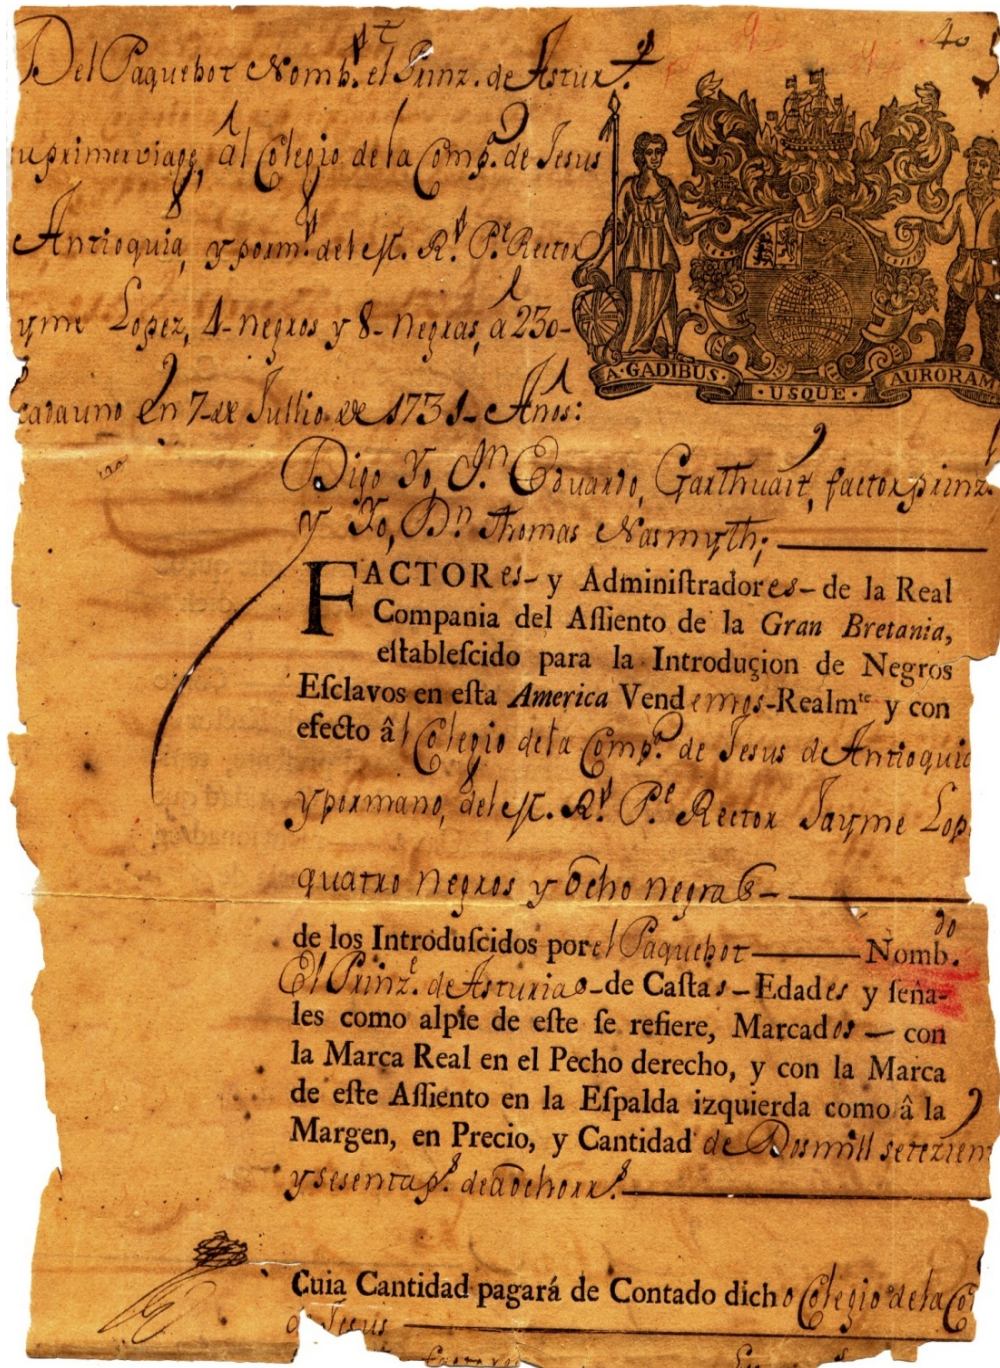 40
Del Paquebot Nomb.do el Prinz.e de Astur.s
su primer viage, al Colegio de la Comp.a de Jesus
Antioquia, y por m.no del M. R.do P.e Rector
yme Lopez, 4- negros y 8- negras, a 230-
cada uno en 7- de Jullio de 1731- Años:
Digo Yo, Dn Eduardo, Garthuait, factor prinz.
y Yo, Dn Thomas Nasmyth;
FACTORes- y Adminiſtradores- de la Real
Compania del Aſſiento de la Gran Bretania,
eſtableſcido para la Introduçion de Negros
Eſclavos en eſta America Vendemos-Realmte y con
efecto âl Colegio de la Comp.a de Jesus de Antioquia
y por mano, del M. R.do P.e Rector Jayme Lop
quatro negros y ocho negras-
de los Introduſcidos por el Paquebot Nomb.do
El Prinz.e de Asturias-de Caſtas-Edades y ſeña-
les como alpie de eſte ſe refiere, Marcados- con
la Marca Real en el Pecho derecho, y con la Marca
de eſte Aſſiento en la Eſpalda izquierda como â la
Margen, en Precio, y Cantidad de Dosmill setezien
y sesenta p.s de a ocho rr.s
Cuia Cantidad pagará de Contado dicho Colegio de la Co
de Jesus
A·GADIBUS· ·USQUE· AURORAM